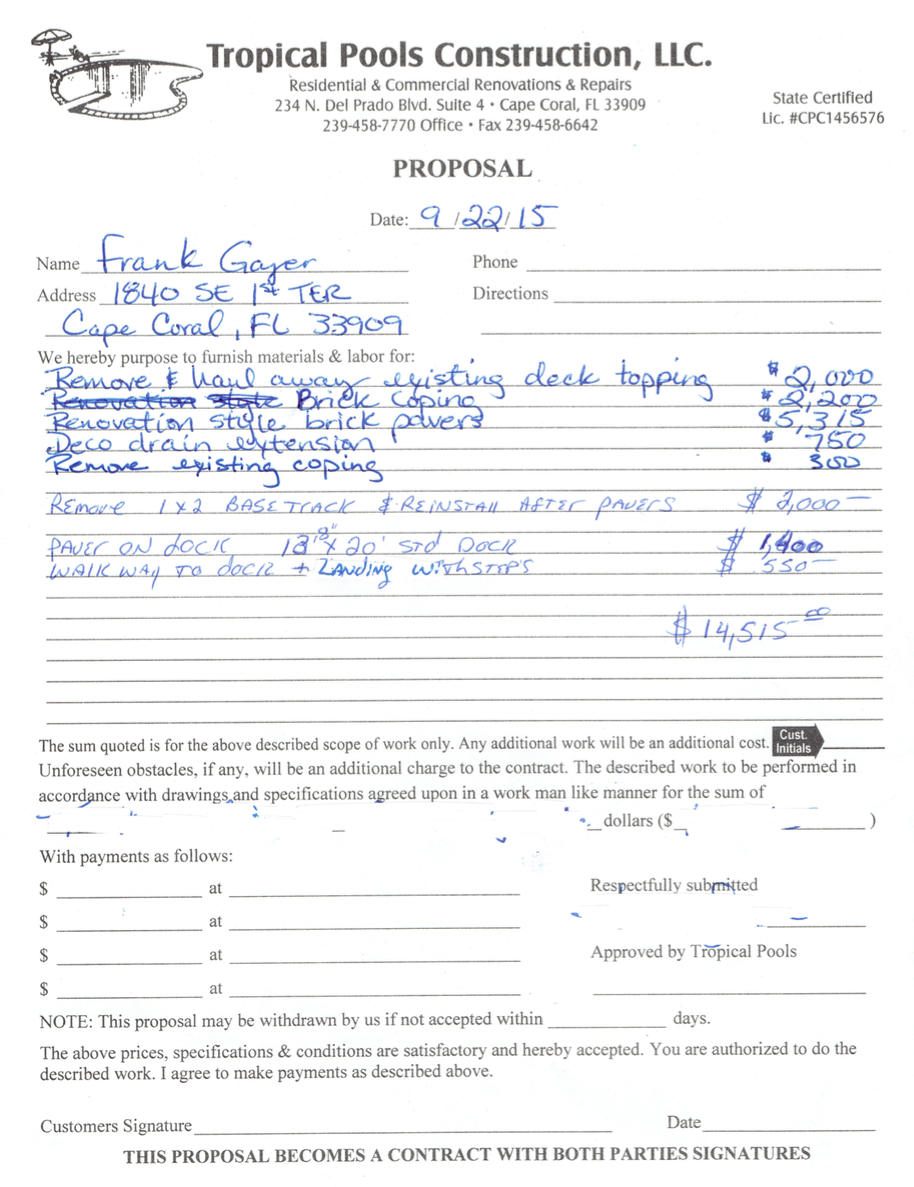 Tropical Pools Construction, LLC.
Residential & Commercial Renovations & Repairs
234 N. Del Prado Blvd. Suite 4 • Cape Coral, FL 33909
239-458-7770 Office • Fax 239-458-6642
State Certified
Lic. #CPC1456576
PROPOSAL
Date: 9/22/15
Name Frank Gayer
Phone
Address 1840 SE 1st TER
Directions
Cape Coral, FL 33909
We hereby purpose to furnish materials & labor for:
Remove & haul away existing deck topping $2,000
Renovation style Brick Coping $2,200
Renovation style brick pavers $5,315
Deco drain extension $ 750
Remove existing coping $ 300
REMOVE 1X2 BASE TRACK & REINSTALL AFTER PAVERS $ 2,000—
PAVER ON DOCK X 20' STD DOCK $ 1,400
WALKWAY TO DOCK + LANDING WITH STEP'S $ 550—
$ 14,515 00
The sum quoted is for the above described scope of work only. Any additional work will be an additional cost. Cust. Initials
Unforeseen obstacles, if any, will be an additional charge to the contract. The described work to be performed in
accordance with drawings and specifications agreed upon in a work man like manner for the sum of
dollars ($ )
With payments as follows:
$ at
Respectfully submitted
$ at
$ at
Approved by Tropical Pools
$ at
NOTE: This proposal may be withdrawn by us if not accepted within days.
The above prices, specifications & conditions are satisfactory and hereby accepted. You are authorized to do the
described work. I agree to make payments as described above.
Customers Signature Date
THIS PROPOSAL BECOMES A CONTRACT WITH BOTH PARTIES SIGNATURES